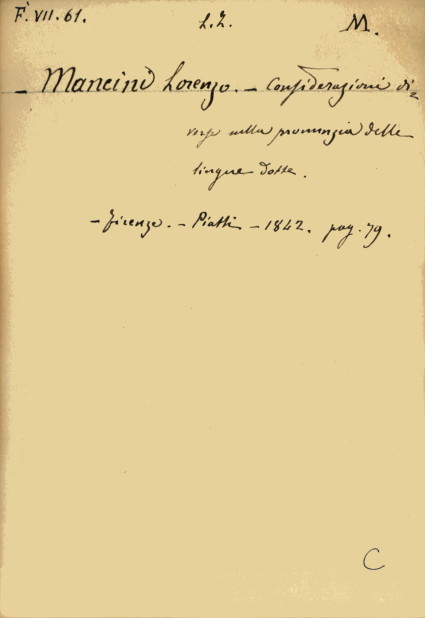 F. VII. 61. L. Z. M.
- Mancini Lorenzo. - Considerazioni di=
verse nella pronunzia delle
lingue dotte.
- Firenze. - Piatti - 1842. pag. 79.
C